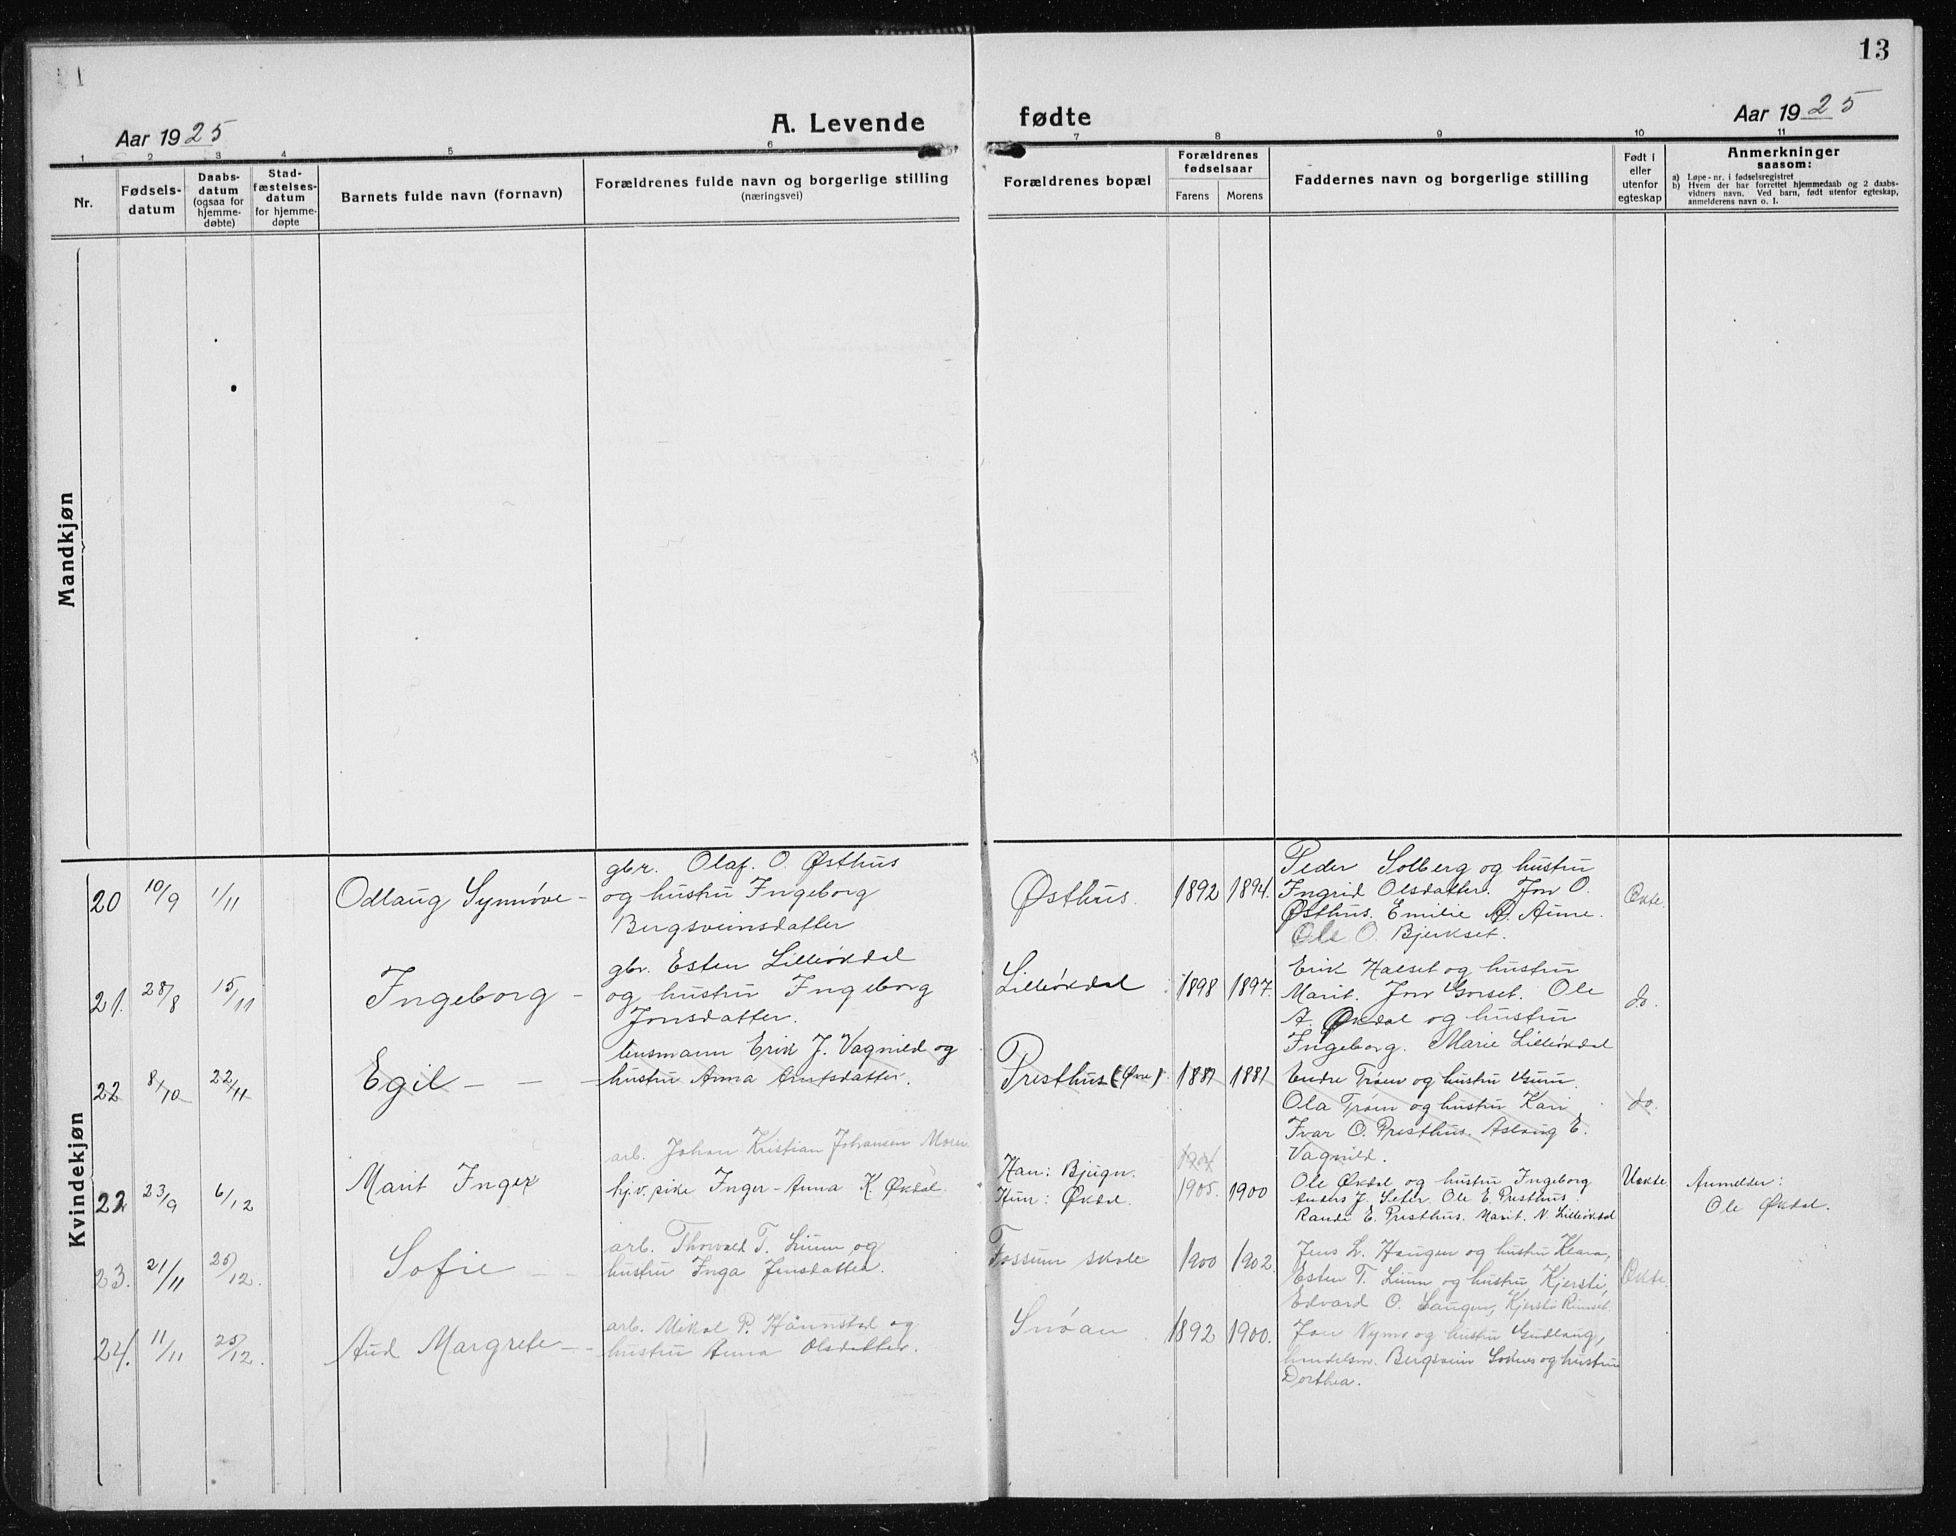 13
Aar 1925
A. Levende fødte
Aar 1925
1 2 3 4 5 6 7 8 9 10 11
Nr.
Fødsels-
datum
Daabs-
datum
(ogsaa for
hjemme-
døbte)
Stad-
fæstelses-
datum
for hjemme-
døpte
Barnets fulde navn (fornavn)
Forældrenes fulde navn og borgerlige stilling
(næringsvei)
Forældrenes bopæl
Forældrenes
fødselsaar
Farens Morens
Faddernes navn og borgerlige stilling
Født i
eller
utenfor
egteskap
Anmerkninger
saasom:
a) Løpe-nr. i fødselsregistret
b) Hvem der har forrettet hjemmedaab og 2 daabs-
vidners navn. Ved barn, født utenfor egteskap,
anmelderens navn o. l.
Mandkjøn
Kvindekjøn
20 10/9 1/11 Odlaug Synnøve -
gbr. Olaf. O. Østhus
og hustru Ingeborg
Bergsveinsdatter
Østhus. 1892 1894.
Peder Solberg og hustru
Ingrid Olsdatter. Jon O.
Østhus. Emilie A. Aune.
Ole O. Bjerkset.
Ekte.
21. 28/8 15/11 Ingeborg -
gbr. Esten Lilleøkdal
og hustru Ingeborg
Jonsdatter.
Lilleøkdal 1898 1897.
Erik Halset og hustru
Marit. Jon Gorset. Ole
A. Økdal og hustru
Ingeborg. Marie Lilleøkdal
do.
22 8/10 22/11 Egil - - -
lensmann Erik J. Vagnild og
hustru Anna Arntsdatter.
Presthus (Øvre) 1881 1881
Endre Trøen og hustru Guru.
Ola Trøen og hustru Kari
Ivar O. Presthus. Aslaug E.
Vagnild.
do.
22 23/9 6/12 Marit Inger
arb. Johan Kristian Johansen
hjv. pike Inger-Anna K. Økdal.
Han: Bjugn.
Hun: Økdal.
1905. 1900
Ole Økdal og hustru Ingeborg
Anders J. Seter. Ole E. Presthus.
Randi E. Presthus. Marit. N. Lilleøkdal
Uekte.
Anmelder:
Ole Økdal.
23. 21/11 25/12. Sofie - -
arb. Thorvald T. Lium og
hustru Inga Jensdatter.
Fossum skole 1900 1902
Jens L. Haugen og hustru Klara,
Esten T. Lium og hustru Kjersti,
Edvard O. Haugen, Kjersti Rimset.
Ekte.
24. 11/11 25/12. Aud Margrete - -
arb. Mikal P. Hånnstad og
hustru Anna Olsdatter.
Snøan 1892 1900.
Jon Nymo og hustru Gudlaug,
handelsm. Bergsvein Soknes og hustru
Dorthea.